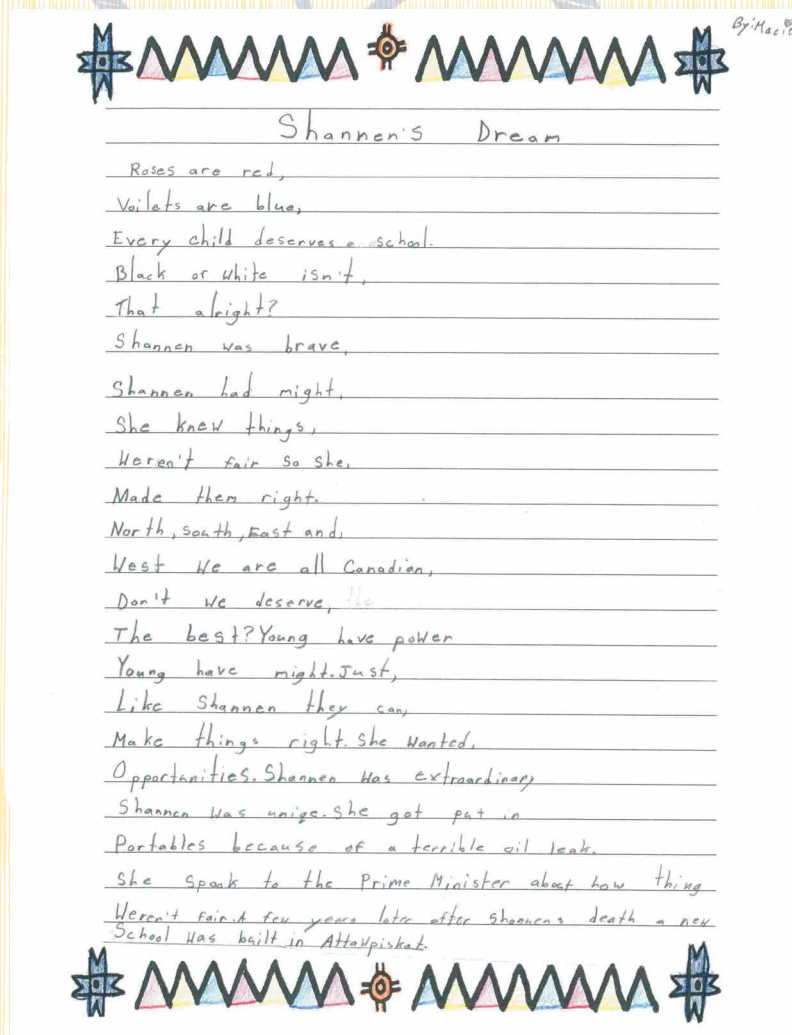 By: Maci
Shannen's Dream
Roses are red,
Voilets are blue,
Every child deserves a school.
Black or white isn't,
That alright?
Shannen was brave,
Shannen had might,
She knew things,
Weren't fair so she,
Made them right.
North, South, East and,
West We are all Canadian,
Don't we deserve, the
The best? Young have power
Young have might. Just,
Like Shannen they can,
Make things right. She wanted,
Opportunities. Shannen was extraordinary
Shannen was uniqe. She got put in
Portables because of a terrible oil leak.
She spook to the Prime Minister about how thing
Weren't fair. A few years later after Shannens death a new
School was built in Attawpiskat.